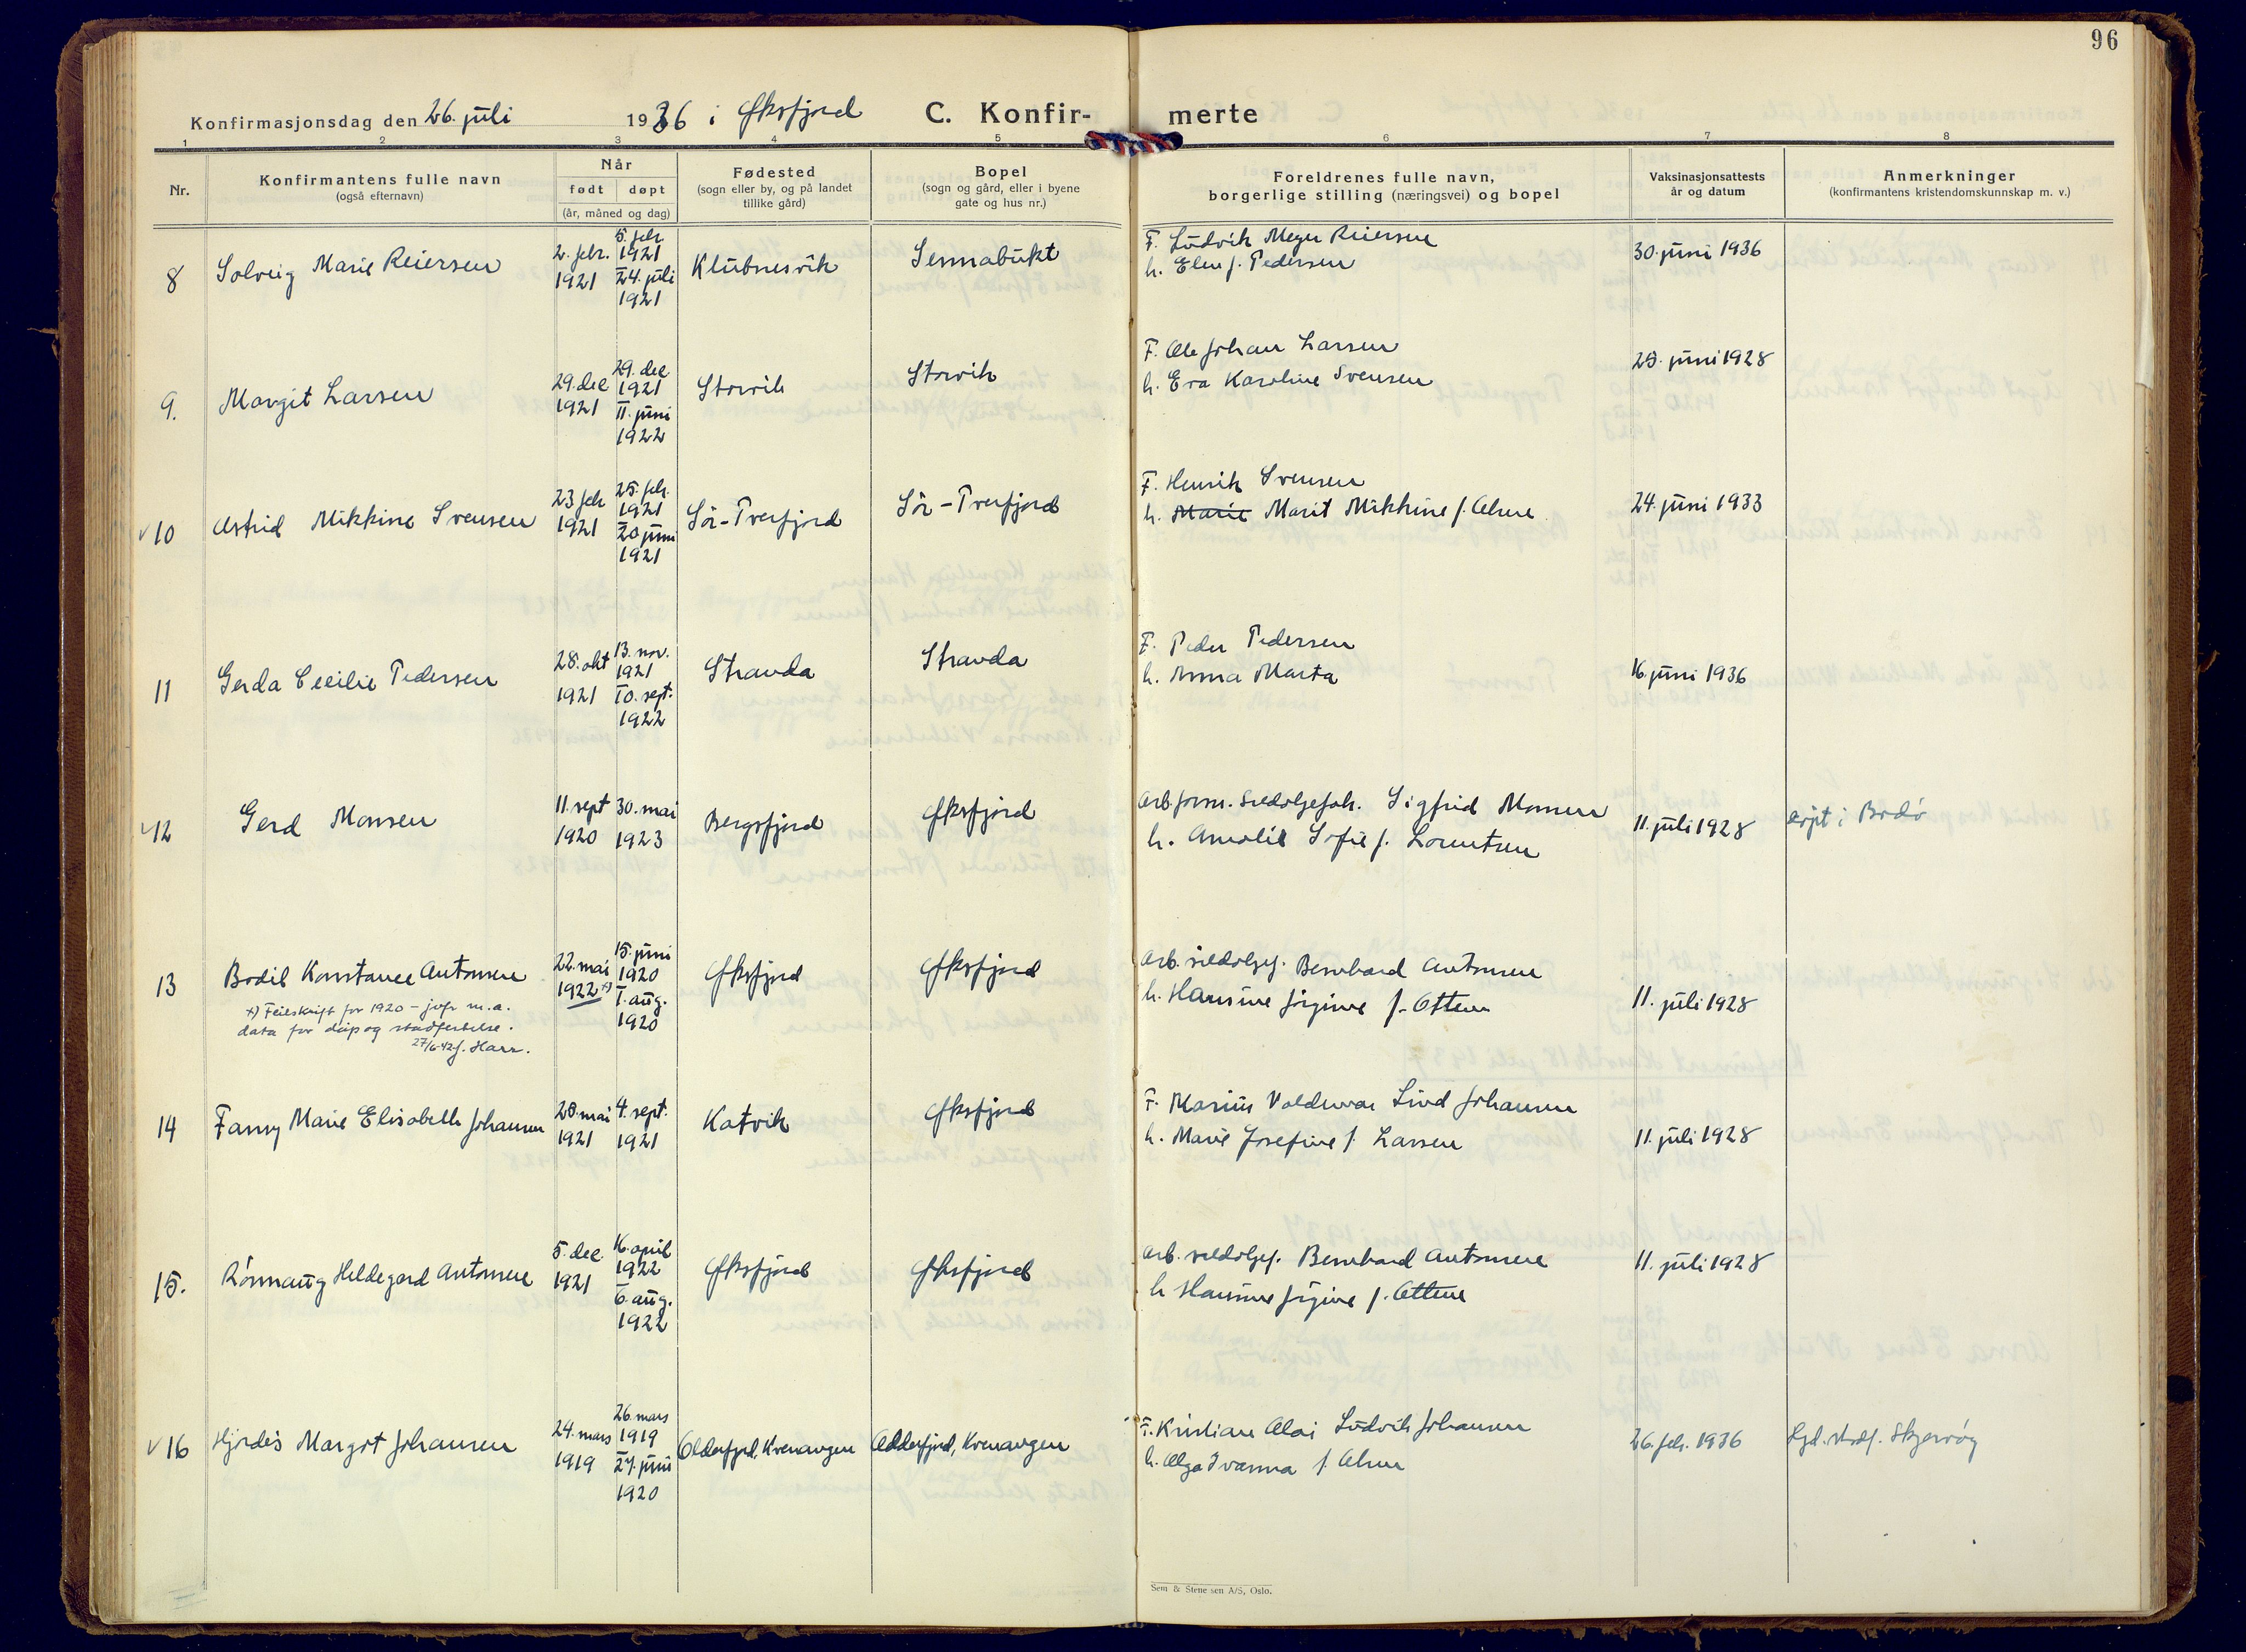 96
Konfirmasjonsdag den 26. juli 1936 i Øksfjord C. Konfir- merte
1 2 3 4 5 6 7 8
Nr.
Konfirmantens fulle navn
(også efternavn)
Når
født døpt
(år, måned og dag)
Fødested
(sogn eller by, og på landet
tillike gård)
Bopel
(sogn og gård, eller i byene
gate og hus nr.)
Foreldrenes fulle navn,
borgerlige stilling (næringsvei) og bopel
Vaksinasjonsattests
år og datum
Anmerkninger
(konfirmantens kristendomskunnskap m. v.)
8 Solveig Marie Reiersen
2. febr.
1921
5. febr.
1921
24. juli
1921
Klubnesvik
Sennabukt
F. Ludvik Meyer Reiersen
h. Elen f. Pedersen
30. juni 1936
9. Margit Larsen
29. dec
1921
29. dec
1921
11. juni
1922
Storvik
Storvik
F. Ole Johan Larsen
h. Eva Karoline Svensen
juni 1928
10 Astrid Mikkine Svensen
23 feb
1921
25. feb.
1921
20 juni
1921
Sör-Tverfjord
Sör-Tverfjord
F. Henrik Svensen
h. Marie Marit Mikkine f. Olsen
24. juni 1933
11 Gerda Cecilie Pedersen
28. okt
1921
13. nov.
1921
10. sept.
1922
Stranda
Stranda
F. Peder Pedersen
h. Anna Marta
16. juni 1936
12 Gerd Monsen
11. sept
1920
30. mai
1923
Bergsfjord
Øksfjord
Arb.form. Sildoljefab. Sigfrid Monsen
h. Amalie Sofie f. Lorentsen
11. juli 1928
døpt i Bodø
13 Bodil Konstance Antonsen
x) Feilskrift for 1920 - jvfr m.a.
data for dåp og stadfestelse.
27/6-42 J. Harr.
22. mai
1922 x)
15. juni
1920
1. aug.
1920
Øksfjord
Øksfjord
Arb. sildoljef. Bernhard Antonsen
h. Hansine Jørgine f. Ottem
11. juli 1928
14 Fanny Marie Elisabeth Johansen
28. mai
1921
4. sept.
1921
Katvik
Øksfjord
F. Marius Valdemar Lind Johansen
h. Marie Josefine f. Larsen
11. juli 1928
15. Rönnaug Hildegard Antonsen
5. dec.
1921
16. april
1922
6. aug.
1922
Øksfjord
Øksfjord
Arb. sildoljef. Bernhard Antonsen
h Hansine Jørgine f. Ottem
11. juli 1928
16 Hjördis Margot Johansen
24. mars
1919
26. mars
1919
27. juni
1920
Olderfjord, Kvenangen
Olderfjord, Kvenangen
F. Kristian Olai Ludvik Johansen
h. Olga Ivanna f. Olsen
26. feb. 1936
Skjervøy
Sem & Stenersen A/S, Oslo.